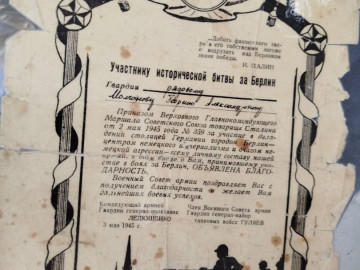 „Добить фашистского зве-
ря в его собственном логове
и водрузить над Берлином
знамя победы.
И. СТАЛИН
Участнику исторической битвы за Берлин
Гвардии рядовому
Александровичу
Приказом Верховного Главнокомандующего
Маршала Советского Союза товарища Сталина
от 2 мая 1945 года № 359 за участие в овла-
дении столицей Германии городом Берлин—
центром немецкого империализма и очагом не-
мецкой агрессии—всему личному составу нашей
армии, в том числе и Вам, принимавшему участ-
ие в боях за Берлин, ОБЪЯВЛЕНА БЛАГО-
ДАРНОСТЬ.
Военный Совет армии поздравляет Вас с
получением благодарности и желает Вам
дальнейших боевых успехов.
Командующий армией
Гвардии генерал-полковник
ЛЕЛЮШЕНКО
Член Военного Совета армии
Гвардии генерал-майор
танковых войск ГУЛЯЕВ
3 мая 1945 г.